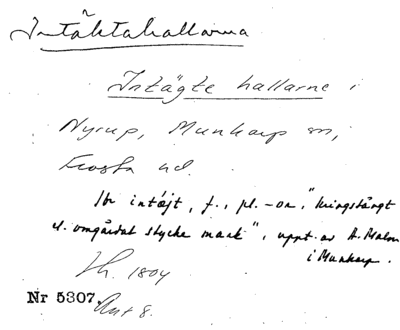 Intäktahallarna
Intägte hallarne i
Nyrup, Munkarp sn,
Frosta hd.
Jbr intöjt, f., pl. -or, "kringstängt
el. omgärdat stycke mark", uppt. av A. Malm
i Munkarp.
Lh. 1804
Nr 5307.
Akt 8.